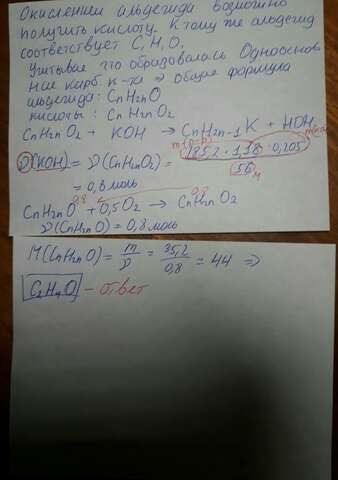 Окислением альдегида возможно
получить кислоту. К тому же альдегид
соответствует C, H, O.
Учитывая что образовалась Однооснов
ная карб. к-та ⇒ общая формула
альдегида: CnH2nO
кислоты: CnH2nO2
CnH2nO2 + KOH → CnH2n-1K + HOH
m(р-р)
ν(KOH) = ν(CnH2nO2) = 185,2 · 1,18 · 0,205 / 56
M
= 0,8 моль
0,8 0,8
CnH2nO + 0,5O2 → CnH2nO2
ν(CnH2nO) = 0,8 моль
M(CnH2nO) = m/ν = 35,2/0,8 = 44 ⇒
C2H4O - ответ